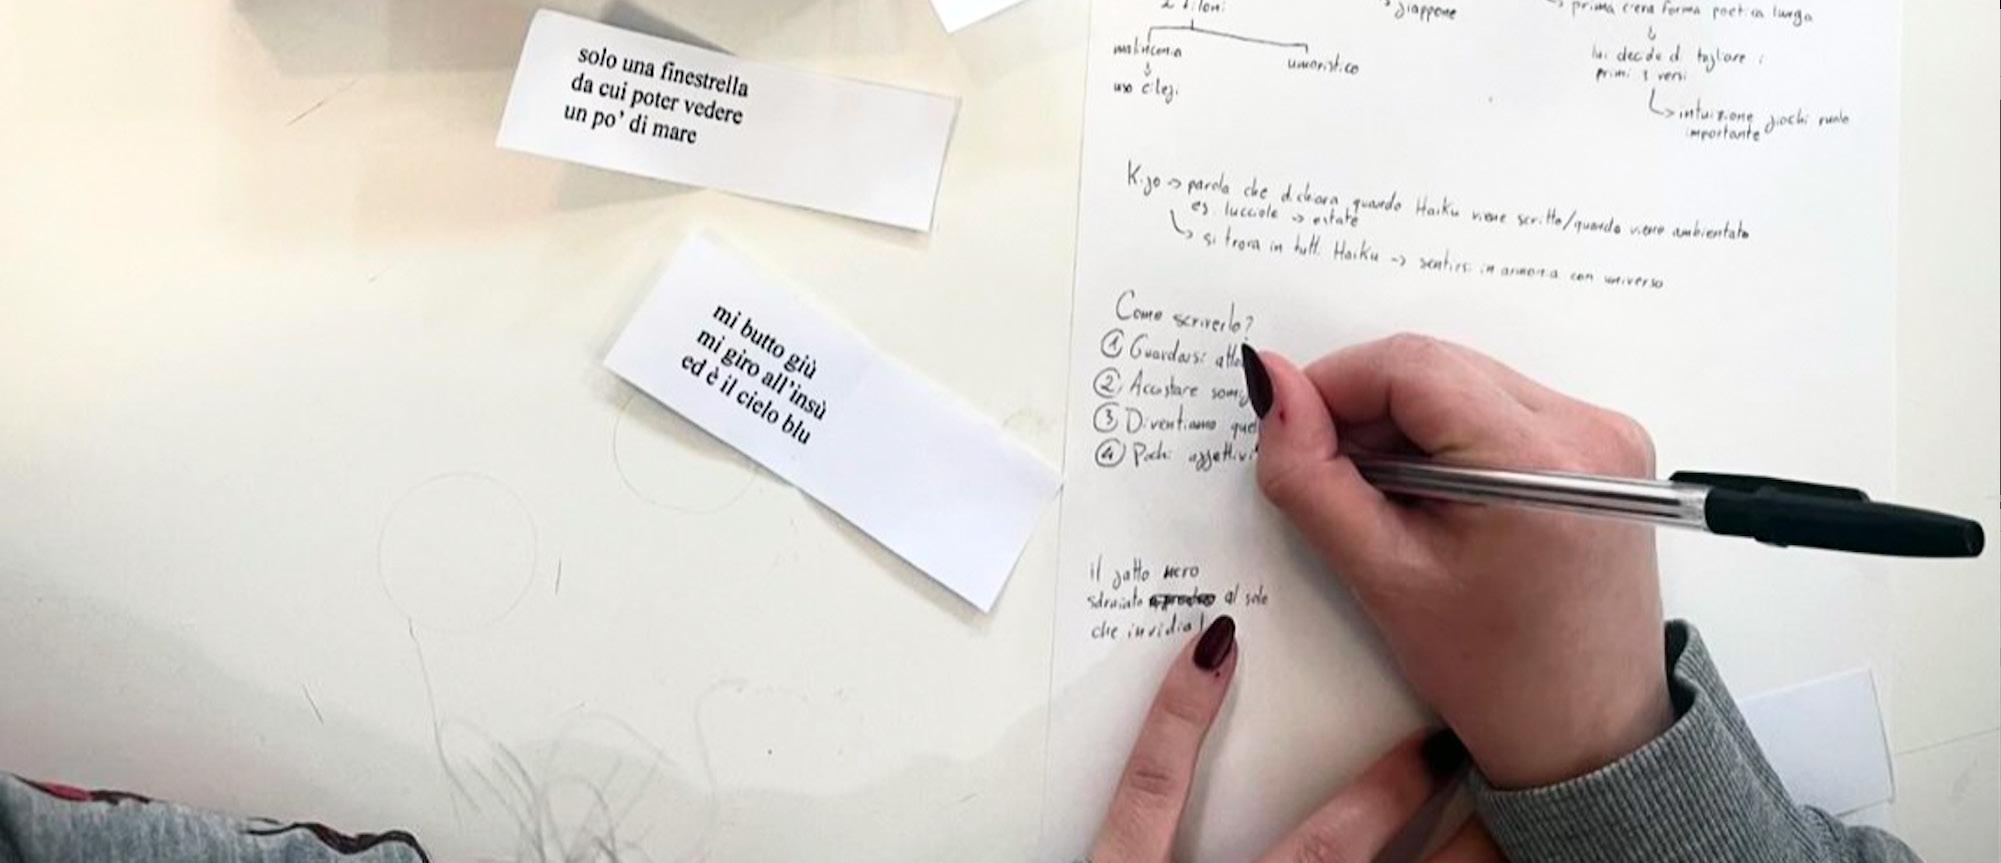 solo una finestrella
da cui poter vedere
un po' di mare
mi butto giù
mi giro all'insù
ed è il cielo blu
2 filoni
malinconia
umoristico
uso ciliegi
giappone
prima c'era forma poetica lunga
lui decide di tagliare i
primi 3 versi
intuizione giochi
importante
Kigo → parola che dichiara quando Haiku viene scritto/quando viene ambientato
es. lucciole → estate
si trova in tutti Haiku → sentirsi in armonia con universo
Come scriverlo?
① Guardarsi
② Accostare
③ Diventiamo
④ Pochi aggettivi
il gatto nero
sdraiato al sole
che invidia!